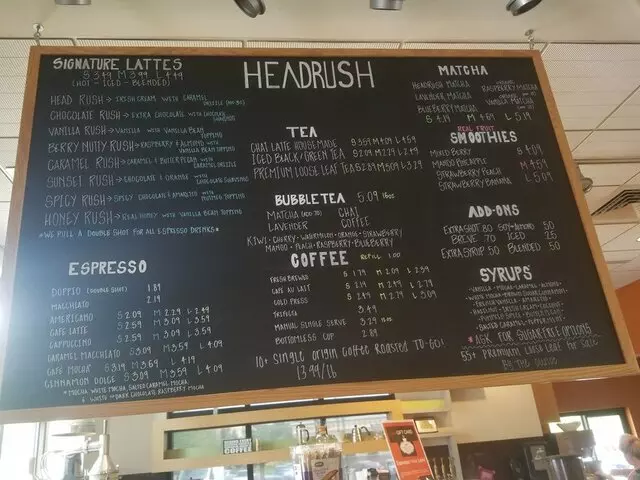 HEADRUSH
SIGNATURE LATTES
S 3.49 M 3.99 L 4.49
(HOT - ICED - BLENDED)
HEAD RUSH → IRISH CREAM WITH CARAMEL DRIZZLE
CHOCOLATE RUSH → EXTRA CHOCOLATE WITH CHOCOLATE SHAVINGS
VANILLA RUSH → VANILLA WITH VANILLA BEAN TOPPING
BERRY NUTTY RUSH → RASPBERRY & ALMOND WITH VANILLA BEAN TOPPING
CARAMEL RUSH → CARAMEL & BUTTERPECAN WITH CARAMEL DRIZZLE
SUNSET RUSH → CHOCOLATE & ORANGE WITH CHOCOLATE SHAVINGS
SPICY RUSH → SPICY CHOCOLATE & AMARETTO WITH NUTMEG TOPPING
HONEY RUSH → REAL HONEY WITH VANILLA BEAN TOPPING
*WE PULL A DOUBLE SHOT FOR ALL ESPRESSO DRINKS*
ESPRESSO
DOPPIO (DOUBLE SHOT) 1.89
MACCHIATO 2.19
AMERICANO S 2.09 M 2.29 L 2.49
CAFE LATTE S 2.59 M 3.09 L 3.59
CAPPUCCINO S 2.59 M 3.09 L 3.59
CARAMEL MACCHIATO S 3.09 M 3.59 L 4.09
CAFE MOCHA S 3.19 M 3.69 L 4.19
CINNAMON DOLCE S 3.09 M 3.59 L 4.09
*MOCHA, WHITE MOCHA, SALTED CARAMEL MOCHA,
& WHITE OR DARK CHOCOLATE RASPBERRY MOCHA
TEA
CHAI LATTE HOUSE MADE S 3.59 M 4.09 L 4.59
ICED BLACK/GREEN TEA S 2.09 M 2.29 L 2.49
PREMIUM LOOSE LEAF TEA S 2.89 M 3.09 L 3.29
BUBBLE TEA 5.09 16oz
MATCHA CHAI
LAVENDER COFFEE
KIWI - CHERRY - WATERMELON - ORANGE - STRAWBERRY
MANGO - PEACH - RASPBERRY - BLUEBERRY
COFFEE REFILL 1.00
FRESH BREWED S 1.79 M 2.09 L 2.39
CAFE AU LAIT S 2.19 M 2.49 L 2.79
COLD PRESS S 2.49 M 2.79 L 3.09
TRIFECTA 3.49
MANUAL SINGLE SERVE 3.29
BOTTOMLESS CUP 2.89
10+ SINGLE ORIGIN COFFEE ROASTED TO-GO!
13.99/LB
MATCHA
HEADRUSH MATCHA RASPBERRY MATCHA
LAVENDER MATCHA VANILLA MATCHA
BLUEBERRY MATCHA
S 4.19 M 4.69 L 5.19
REAL FRUIT
SMOOTHIES
MIXED BERRY S 4.09
MANGO PINEAPPLE M 4.59
STRAWBERRY PEACH L 5.09
STRAWBERRY BANANA
ADD-ONS
EXTRA SHOT .80 SOY/ALMOND .50
BREVE .70 ICED .25
EXTRA SYRUP .50 BLENDED .50
SYRUPS
VANILLA - MOCHA - CARAMEL - ALMOND
* ASK FOR SUGAR FREE OPTIONS
55+ PREMIUM LOOSE LEAF FOR SALE
BY THE OUNCE
COFFEE
GIFT CARD